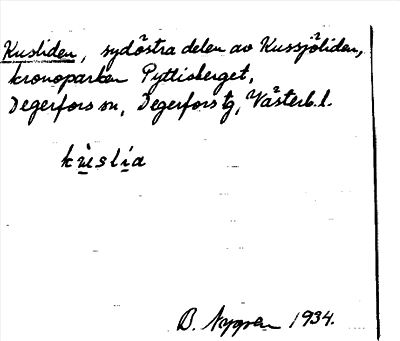 Kusliden, sydöstra delen av Kussjöliden,
kronoparken Pyttisberget,
Degerfors sn, Degerfors tg, Västerb. l.
kùslia
B. Nygren 1934.